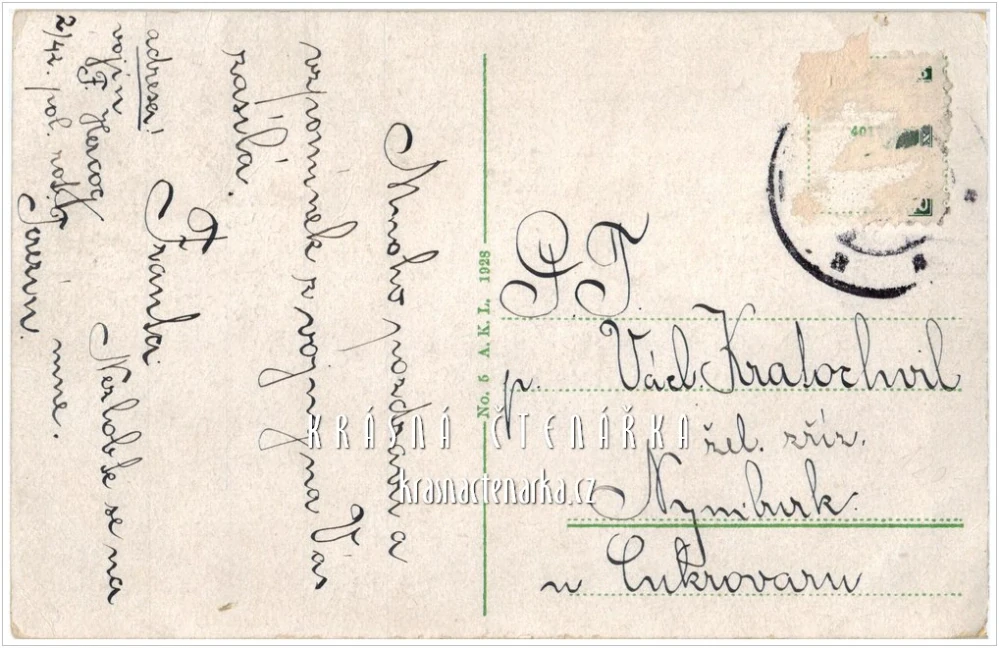 Mnoho pozdravů a
vzpomínek z vojny na Vás
zasílá.
Franta
Nezlobte se na
mne.
adresa!
vojín
F. Hercog
2/42. pol.
Terezín.
No. 5 A. K. L. 1928
P. T.
p. Václ. Kratochvil
žel. zříz.
Nymburk.
u Cukrovaru
KRÁSNÁ ČTENÁŘKA
krasnactenarka.cz